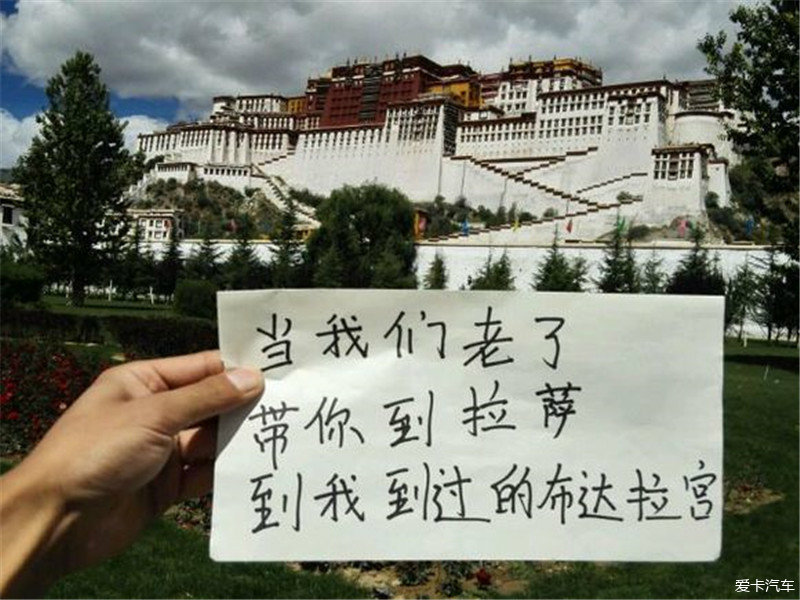 当我们老了
带你到拉萨
到我到过的布达拉宫
爱卡汽车